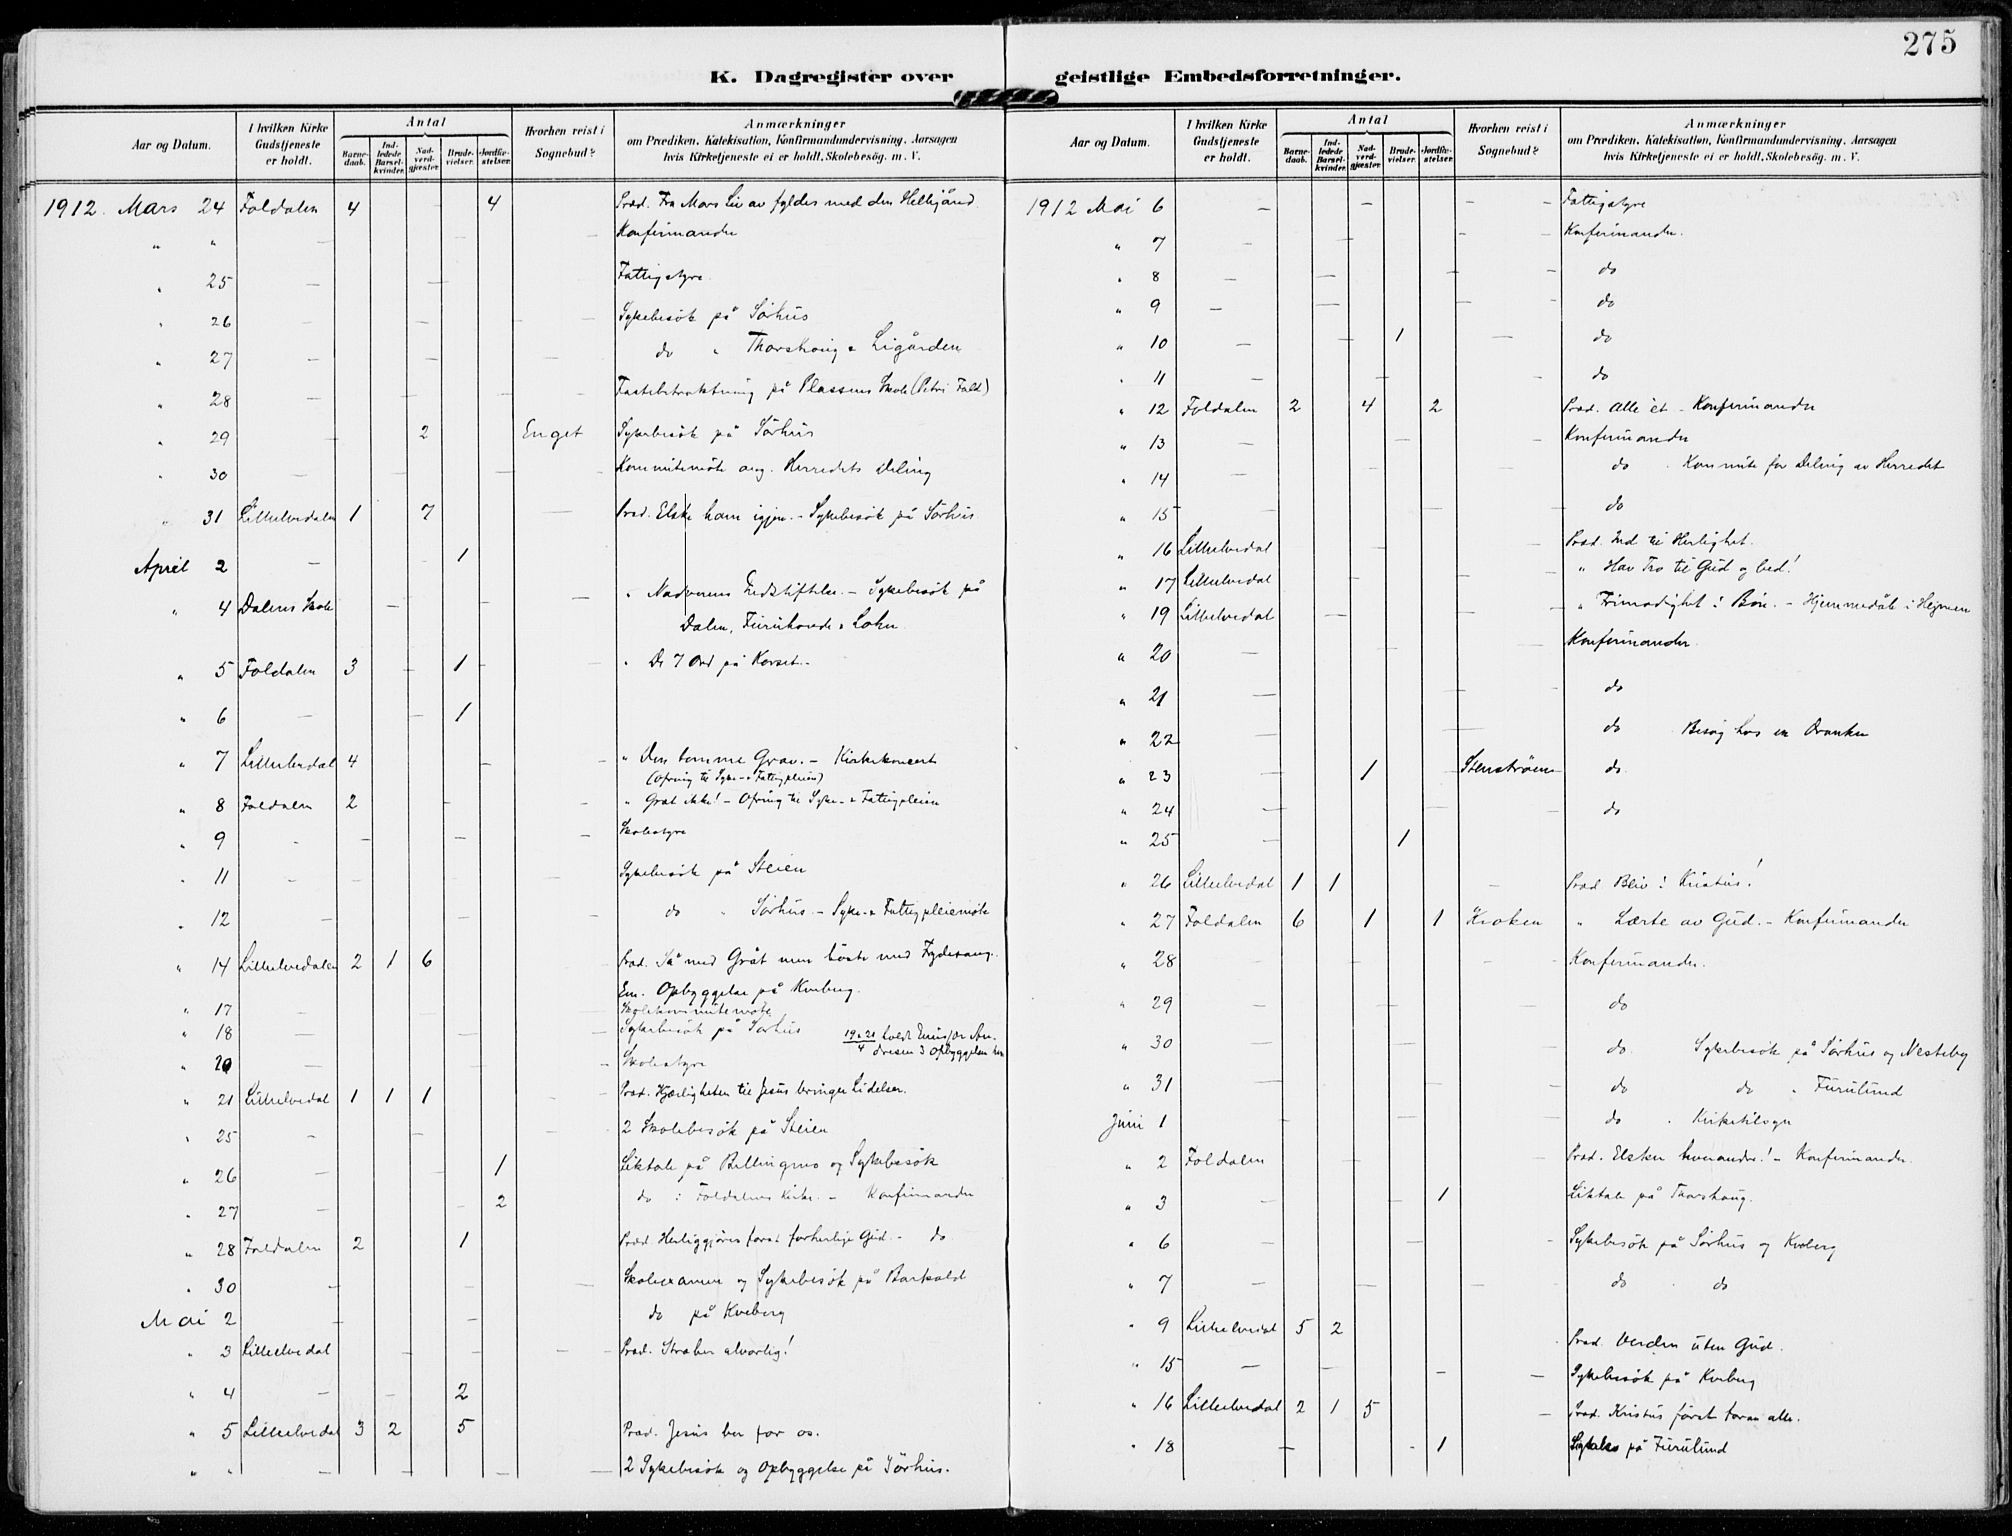 275
K. Dagregister over geistlige Embedsforretninger.
Aar og Datum.
I hvilken Kirke Gudstjeneste er holdt.
Antal
Barnedaab.
Indledede Barselkvinder.
Nadverdgjester.
Brudevielser.
Jordfæstelser.
Hvorhen reist i Sognebud?
Anmærkninger
om Prædiken, Katekisation, Konfirmandundervisning, Aarsagen
hvis Kirketjeneste ei er holdt, Skolebesøg. m. V.
1912. Mars 24 Foldalen 4 4 Præd. Fra Mars
" " — — — Konfirmander
" 25 — — Fattigstyre.
" 26 — — — Sykebesök på Sörhus
" 27 — — — do " Thorshaug & Ligården
" 28 — — — Fastebetraktning på Plassens Skole (Petri Fald)
" 29 — 2 Enget Sykebesök på Sörhus
" 30 — — — Kommitemöte ang. Herredets Deling
" 31 Lilleelvedalen 1 7 — Præd. Elske ham igjen. – Sykebesök på Sörhus
April 2 — 1
" 4 Dalens Skole — — — " Nadverens Indstiftelse. – Sykebesök på
Dalen, Furuhovde & Lohn.
" 5 Foldalen 3 — 1 — — " De 7 Ord på Korset.
" 6 — — 1
" 7 Lilleelvedal 4 — " Den tomme Grav. – Kirkekoncert
(Ofring til Syke- & Fattigpleien)
" 8 Foldalen 2 — — " Gråt ikke! – Ofring til Syke- & Fattigpleien
" 9 - — — — Skolestyre
" 11 - — — Sykebesök på Steien
" 12 — — do " Sörhus. – Syke- & Fattigpleiemöte
" 14 Lilleelvedalen 2 1 6 Præd. Så med Gråt men höste med Frydesang.
Em. Opbyggelse på Kveberg.
" 17 — Skolekommitemöte
" 18 — — Sykebesök på Sörhus
" 20 — Skolestyre
" 21 Lilleelvedal 1 1 1 Præd. Kjærligheten til Jesus bringer Lidelser.
" 25 - — — 2 Skolebesök på Steien
" 26 — 1 Liktale på Bellingmo og Sykebesök
" 27 — 2 do i Foldalens Kirke. – Konfirmander
" 28 Foldalen 2 1 Præd. Herliggjöres for at forherlige Gud. – do.
" 30 — — — Skoleexamen og Sykebesök på Barkald
Mai 2 — — do på Kveberg
" 3 Lilleelvedal — — — Præd. Stræber alvorlig!
" 4 — — 2
" 5 Lilleelvedal 3 2 5 Præd. Jesus ber for os.
" " — — — — 2 Sykebesök og Opbyggelse på Sörhus.
Aar og Datum.
I hvilken Kirke Gudstjeneste er holdt.
Antal
Barnedaab.
Indledede Barselkvinder.
Nadverdgjester.
Brudevielser.
Jordfæstelser.
Hvorhen reist i Sognebud?
Anmærkninger
om Prædiken, Katekisation, Konfirmandundervisning, Aarsagen
hvis Kirketjeneste ei er holdt, Skolebesøg. m. V.
1912 Mai 6 — — — Fattigstyre
" 7 — — — Konfirmander.
" 8 — — — do
" 9 — — — do
" 10 — — 1 — do
" 11 — — do
" 12 Foldalen 2 4 2 Præd. Alle et – Konfirmander
" 13 — — — Konfirmander
" 14 — do. Kommite for Deling av Herredet
" 15 — — — do
" 16 Lilleelvedal — — Præd. Ind til Herlighet.
" 17 Lilleelvedal — — " Hav Tro til Gud og bed!
" 19 Lilleelvedal — — " Frimodighet i Bön. –
" 20 — — — Konfirmander.
" 21 — — — do
" 22 — — — do. Besög hos en Dranker
" 23 — 1 — Stenström do.
" 24 — — do
" 25 — 1
" 26 Lilleelvedal 1 1 — Præd. Bliv i Kristus!
" 27 Foldalen 6 1 1 Kroken " Lærte av Gud. – Konfirmander
" 28 — — — Konfirmander.
" 29 — — — do
" 30 — — — do. Sykebesök på Sörhus og Nesteby
" 31 — — do do " Furulund
Juni 1 — — do. Kirketilsyn
" 2 Foldalen — — Præd. Elsker hverandre! – Konfirmander.
" 3 — — 1 Liktale på Thorshaug.
" 6 — — — Sykebesök på Sörhus og Kveberg
" 7 — — — do do
" 9 Lilleelvedal 5 2 Præd. Verden uten Gud.
" 15 — — — — Sykebesök på Kveberg
" 16 Lilleelvedal 2 1 5 — Præd. Kristus först foran alle.
" 18 — - 1 Liktale på Furulund